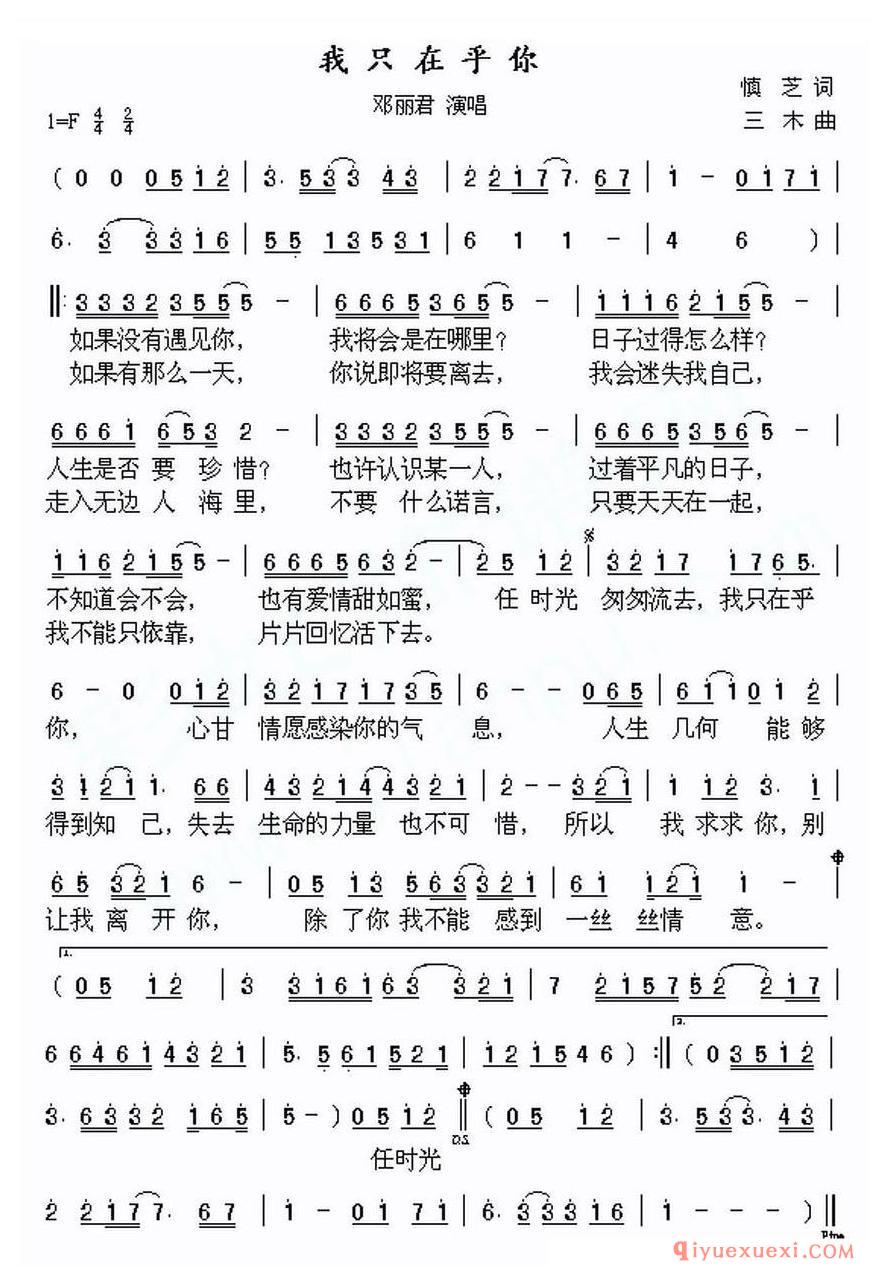 我只在乎你
邓丽君 演唱
慎 芝 词
1=F 4/4 2/4
三 木 曲
( 0 0 0 5 1 2 | 3. 5 3 3 4 3 | 2 2 1 7 7. 6 7 | 1 - 0 1 7 1 |
6. 3 3 3 1 6 | 5 5 1 3 5 3 1 | 6 1 1 - | 4 6 ) |
‖: 3 3 3 2 3 5 5 5 - | 6 6 6 5 3 6 5 5 - | 1 1 1 6 2 1 5 5 - |
如果没有遇见你， 我将会是在哪里？ 日子过得怎么样？
如果有那么一天， 你说即将要离去， 我会迷失我自己，
6 6 6 1 6 5 3 2 - | 3 3 3 2 3 5 5 5 - | 6 6 6 5 3 5 6 5 - |
人生是否 要 珍惜？ 也许认识某一人， 过着平凡的日子，
走入无边 人 海里， 不要 什么诺言， 只要天天在一起，
1 1 6 2 1 5 5 - | 6 6 6 5 6 3 2 - | 2 5 1 2 | 3 2 1 7 | 1 7 6 5. |
不知道会不会， 也有爱情甜如蜜， 任 时光 匆匆流去，我只在乎
我不能只依靠， 片片回忆活下去。
6 - 0 0 1 2 | 3 2 1 7 1 7 3 5 | 6 - - 0 6 5 | 6 1 1 0 1 2 |
你， 心甘 情愿感染你的气 息， 人生 几何 能 够
3 1 2 1 1. 6 6 | 4 3 2 1 4 4 3 2 1 | 2 - - 3 2 1 | 1 1 2 3. 1 |
得到知 己，失去 生命的力量 也不可 惜， 所以 我 求求 你，别
6 5 3 2 1 6 - | 0 5 1 3 5 6 3 3 2 1 | 6 1 1 2 1 1 - |
让我 离 开你， 除 了你 我不能 感到 一丝 丝情 意。
1.
( 0 5 1 2 | 3 3 1 6 1 6 3 3 2 1 | 7 2 1 5 7 5 2 2 1 7 |
2.
6 6 4 6 1 4 3 2 1 | 5. 5 6 1 5 2 1 | 1 2 1 5 4 6 ) :‖ ( 0 3 5 1 2 |
3. 6 3 3 2 1 6 5 | 5 - ) 0 5 1 2 ‖ ( 0 5 1 2 | 3. 5 3 3. 4 3 |
D.S.
任时光
2 2 1 7 7. 6 7 | 1 - 0 1 7 1 | 6. 3 3 3 1 6 | 1 - - - ) ‖
Fine
qiyuexuexi.com